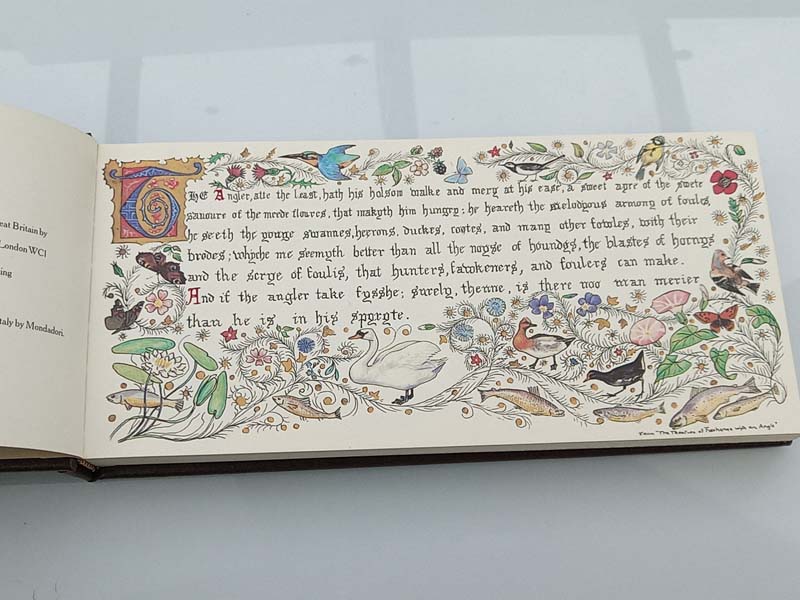 eat Britain by
London WC1
ing
taly by Mondadori.
THE Angler, atte the least, hath his holsom walke and mery at his ease, a sweet ayre of the swete
savoure of the meede floures, that makyth him hungry; he heareth the melodyous armony of foules,
he seeth the yonge swannes, heerons, duckes, cootes, and many other fowles, with their
brodes; whiche me seemyth better than all the noyse of houndgs, the blastes of hornys
and the scrye of foulis, that hunters, fawkeners, and foulers can make.
And if the angler take fysshe; surely, thenne, is there noo man merier
than he is in his spyryte.
From "The Treatise of Fysshynge with an Angle"